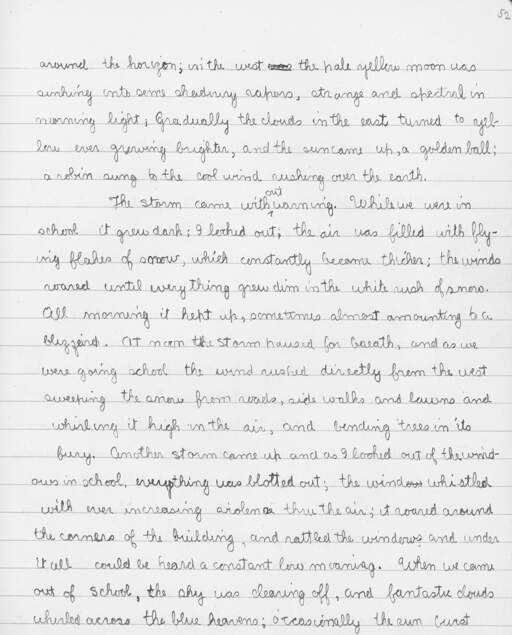 52
around the horizon; in the west the pale yellow moon was
sinking into some shadowy vapors, strange and spectral in
morning light; Gradually the clouds in the east turned to yel-
low ever growing brighter, and the sun came up, a golden ball;
a robin sung to the cool wind rushing over the earth.
The storm came without warning. While we were in
school it grew dark; I looked out; the air was filled with fly-
ing flakes of snow, which constantly became thicker; the winds
roared until everything grew dim in the white rush of snow.
All morning it kept up, sometimes almost amounting to a
blizzard. At noon the storm paused for breath, and as we
were going school the wind rushed directly from the west
sweeping the snow from roads, side walks and lawns and
whirling it high in the air, and bending trees in its
fury. Another storm came up and as I looked out of the wind-
ows in school, everything was blotted out; the wind whistled
with ever increasing violence thru the air; it roared around
the corners of the building, and rattled the windows and under
it all could be heard a constant low moaning. When we came
out of school, the sky was clearing off, and fantastic clouds
whirled across the blue heavens; occasionally the sun burst